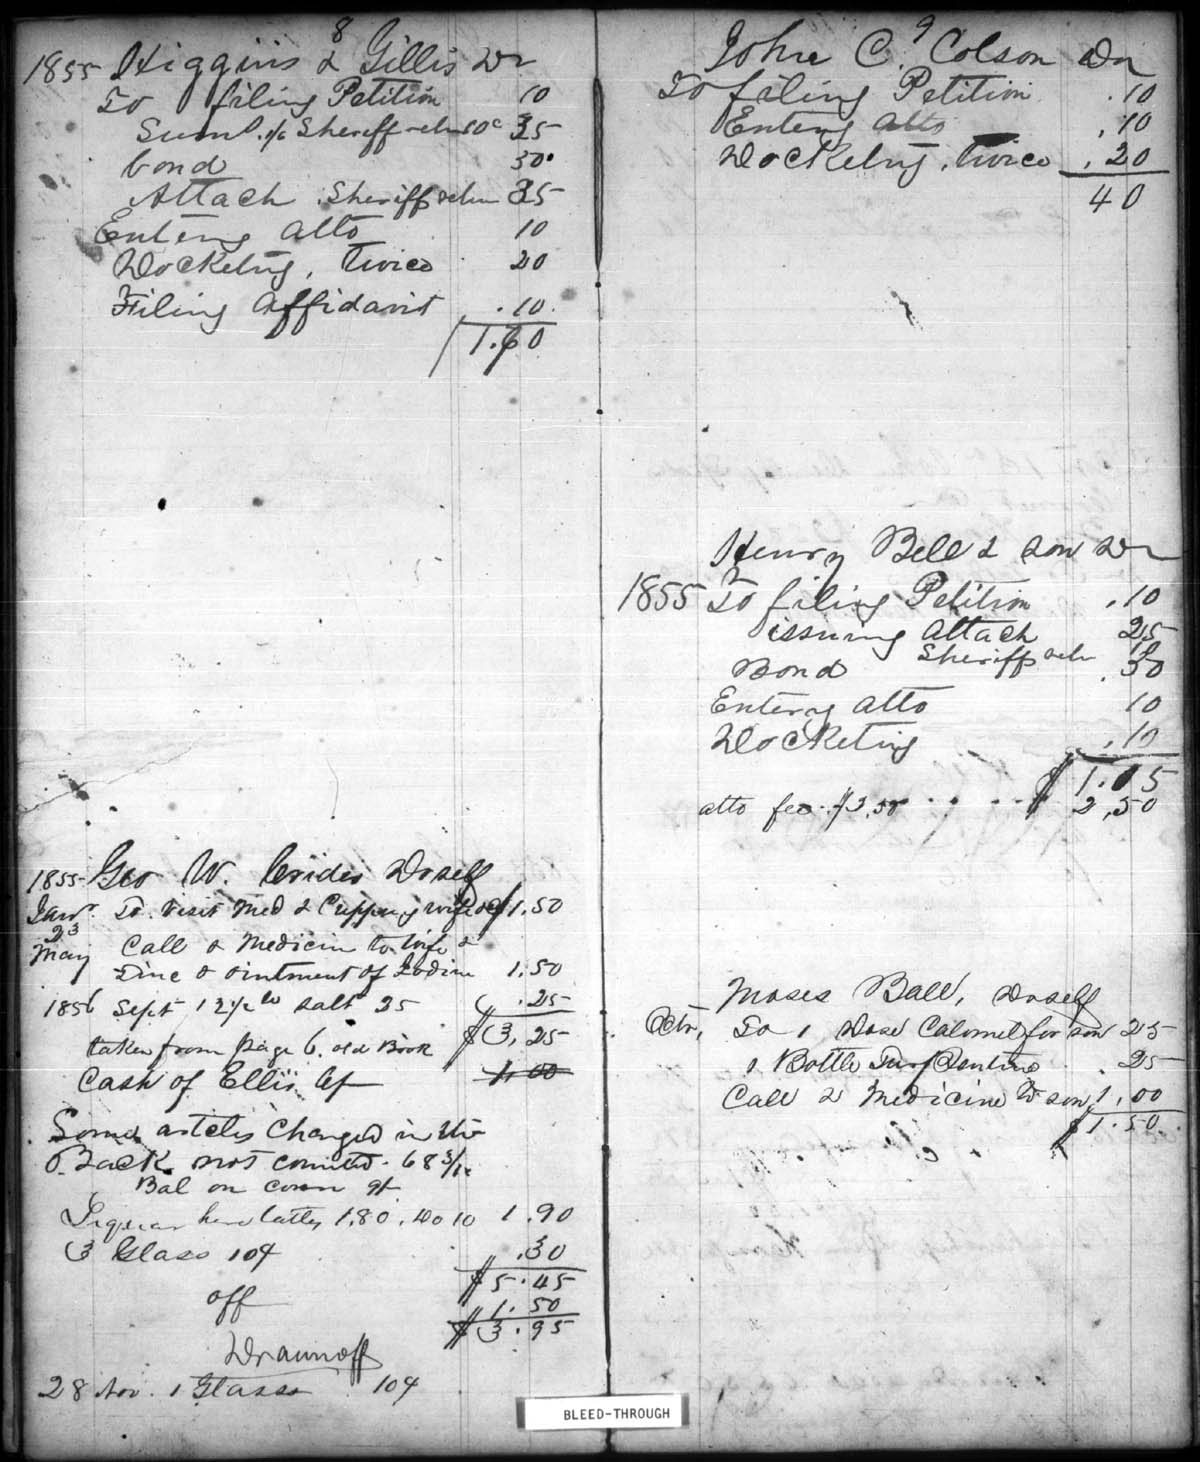 8
1855 Higgins & Gillis Dr
To filing Petition 10
Sheriff 35
bond 30
Attach. Sheriff retn 35
Entering atto 10
Docketing, twice 20
Filing Affidavit .10
1.60
1855 Geo W. Crider Dr self
To Visit Med & Cupping wife 1.50
23
May Call & Medicin to wife &
Tinc & ointment of Iodine 1.50
1856 Sept 12½ lb salt 25 .25
$3,25
taken from page 6. old Book
Cash of Ellis 1.00
Some articles Charged in the
Back not counted. 68
Bal on corn
1.80. Do 10 1.90
3 Glass 10¢ .30
$5.45
off 1.50
$3.95
Drawnoff
28 Nov. 1 Glass 10¢
9
John C. Colson Dr
To filing Petition .10
Entering atto .10
Docketing, twice .20
40
Henry Bell & son Dr
1855 To filing Petition .10
issuing Attach 25
Sheriff retn 10
Bond .30
Entering atto 10
Docketing .10
$1.15
atto fee $2.50 2.50
Moses Ball, Dr self
To 1 Dose Calomel for son 25
1 Bottle Turpentine .25
Call & Medicine to son 1.00
$1.50
BLEED-THROUGH